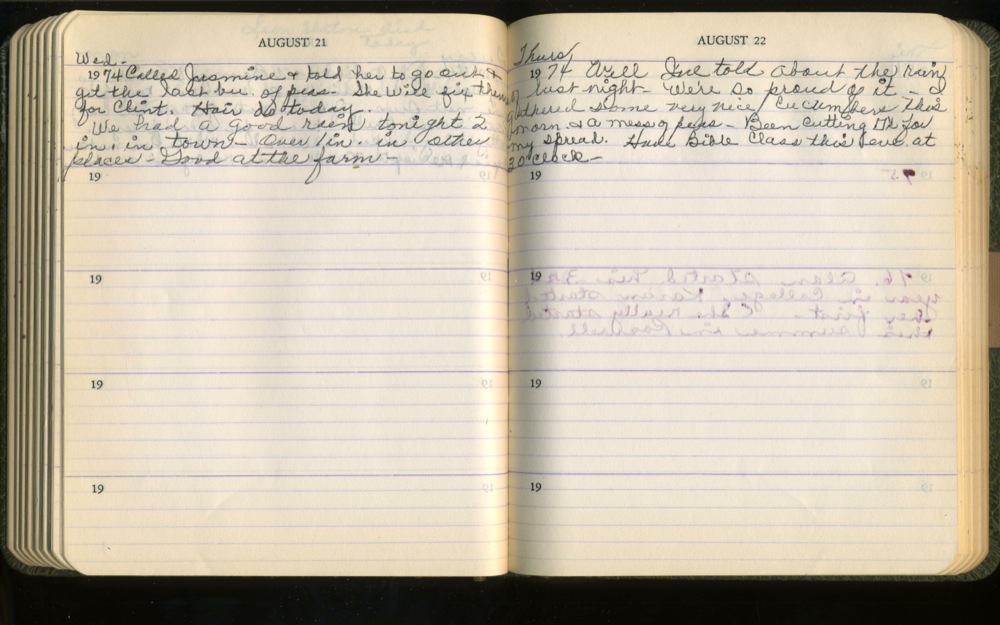 AUGUST 21
Wed.
1974 Called Jasmine & told her to go out &
get the last bu. of peas. She will fix them
for Clint. Hair do today.
We had a good rain tonight 2
in. in town - Over 1 in. in other
places - Good at the farm -
19
19
19
19
AUGUST 22
Thurs
1974 Well I've told about the rain
last night - We're so proud of it - I
gathered some very nice cucumbers this
morn. & a mess of peas - Been cutting for
my spread. Had Bible Class this eve. at
3 o'clock -
19
19
19
19